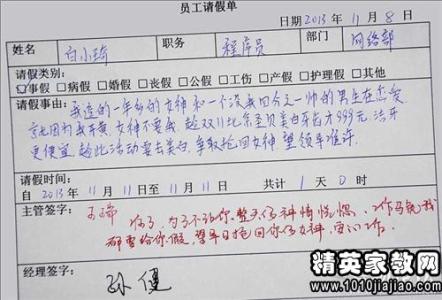 员工请假单
日期 2013 年 11 月 8 日
姓名 白小琦 职务 程序员 部门 网络部
请假类别：
☑事假 □病假 □婚假 □丧假 □公假 □工伤 □产假 □护理假 □其他
请假事由：我追的一年多的女神和一个没我四分之一帅的男生在恋爱
就因为我牙黄女神不要我.趁双11北京圣贝美白牙齿才999元.洁牙
更便宜.趁此活动要去美白,争取抢回女神 望领导准许
请假时间：
自 2013 年 11 月 11 日至 11 月 11 日 共计 1 天 0 时
主管签字：
你了,为了不让你整天精神恍惚.工作
给你假,望早日抢回你的女神,安心工作.
经理签字： 孙健
精英家教网
www.1010jiajiao.com